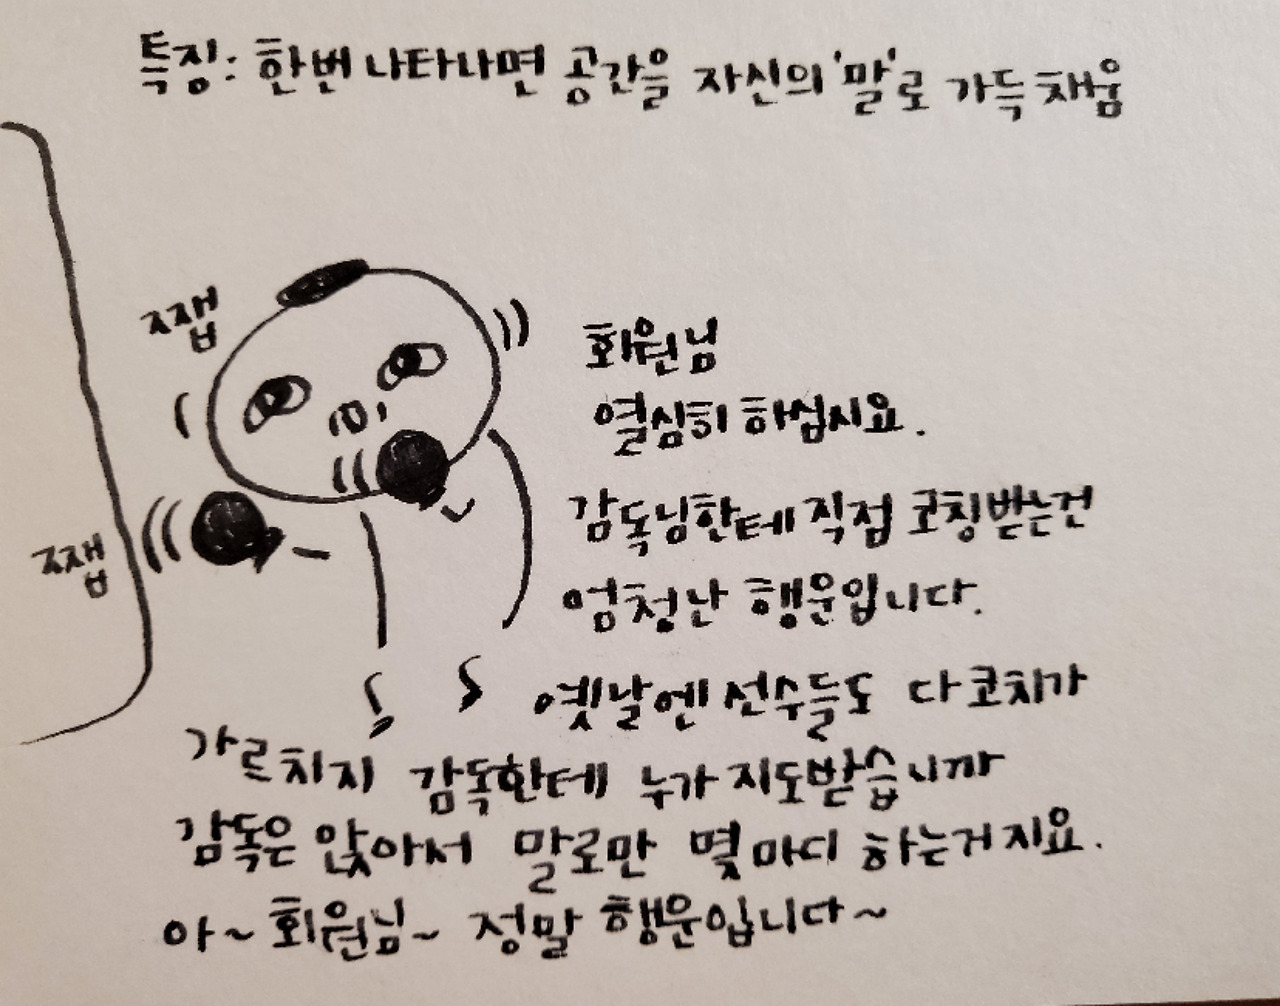 특징: 한번 나타나면 공간을 자신의 '말'로 가득 채움
쨉
쨉
회원님
열심히 하십시요.
감독님한테 직접 코칭받는건
엄청난 행운입니다.
옛날엔 선수들도 다 코치가
가르치지 감독한테 누가 지도받습니까
감독은 앉아서 말로만 몇마디 하는거지요.
아~ 회원님~ 정말 행운입니다~